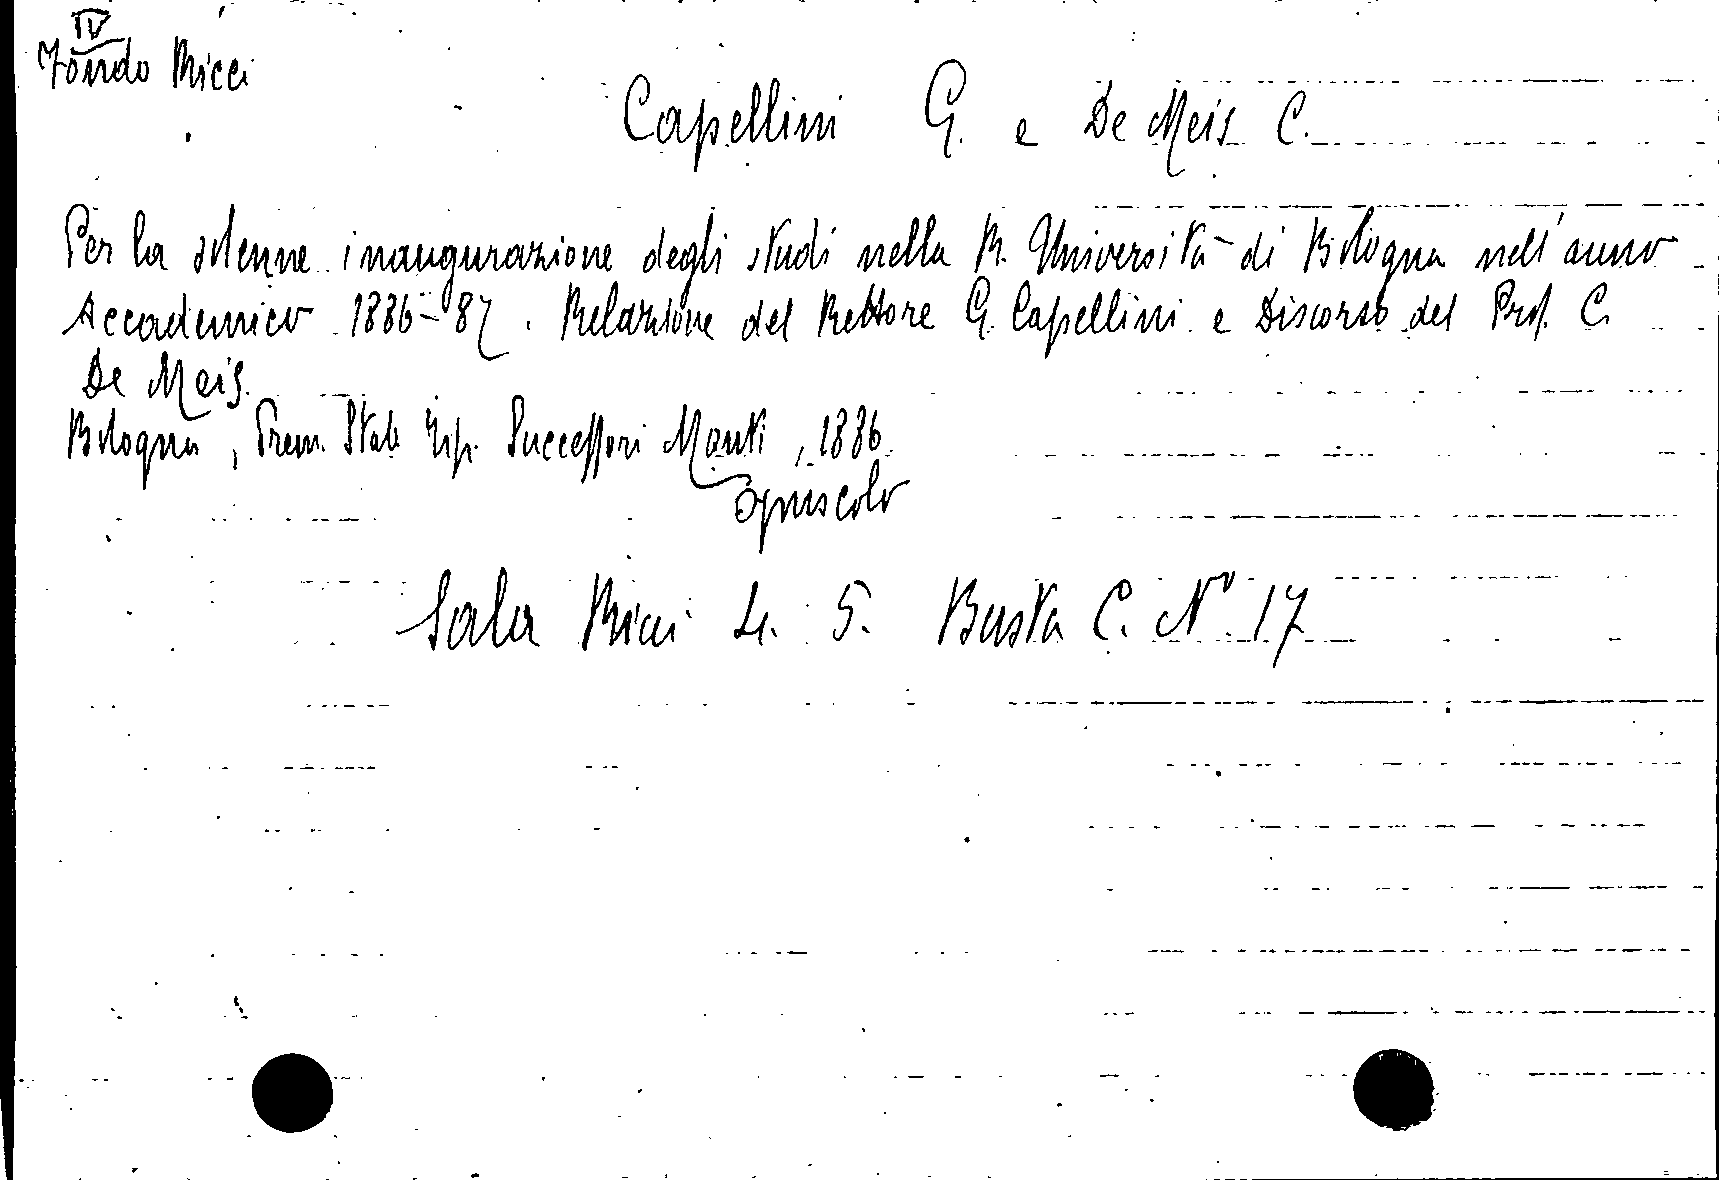 IV
Fondo Ricci
Capellini G. e De Meis C.
Per la solenne inaugurazione degli studi nella R. Università di Bologna nell'anno
Accademico 1886-87. Relazione del Rettore G. Capellini e Discorso del Prof. C.
De Meis.
Bologna, Prem. Stab. Tip. Successori Monti, 1886
opuscolo
Sala Ricci L. 5. Busta C. N° 17